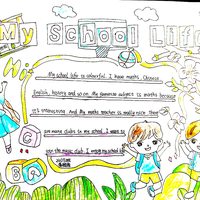 My School Life
Hi
My school life is colourful. I have maths, Chinese
English, history and so on. My favourite subject is maths because
it's interesting. And my maths teacher is really nice. There
are many clubs in my school. I want to
join the music club. I enjoy my school life